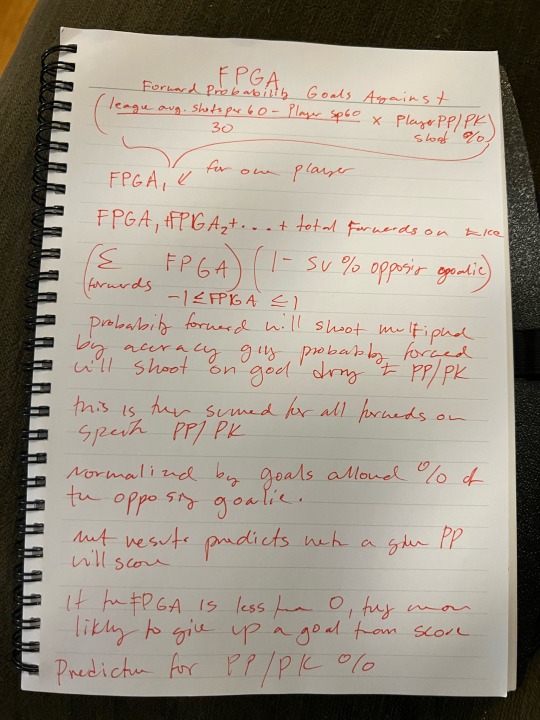 FPGA
Forward Probability Goals Against
(league avg. shots per 60 - Player sp60 × Player PP/PK
30 shoot %)
FPGA, for one player
FPGA, + FPGA2 + ... + total Forwards on ice
(Σ FPGA) (1 - SV % opposing goalie)
forwards
-1 ≤ FPGA ≤ 1
probability forward will shoot multiplied
by accuracy giv probability forward
will shoot on goal PP/PK
this is then summed for all forwards on
PP/PK
Normalized by goals allowed % of
the opposing goalie.
net results predicts a given PP
will score
If the FPGA is less than 0, they more
likely to give up a goal than score
Predictor for PP/PK %